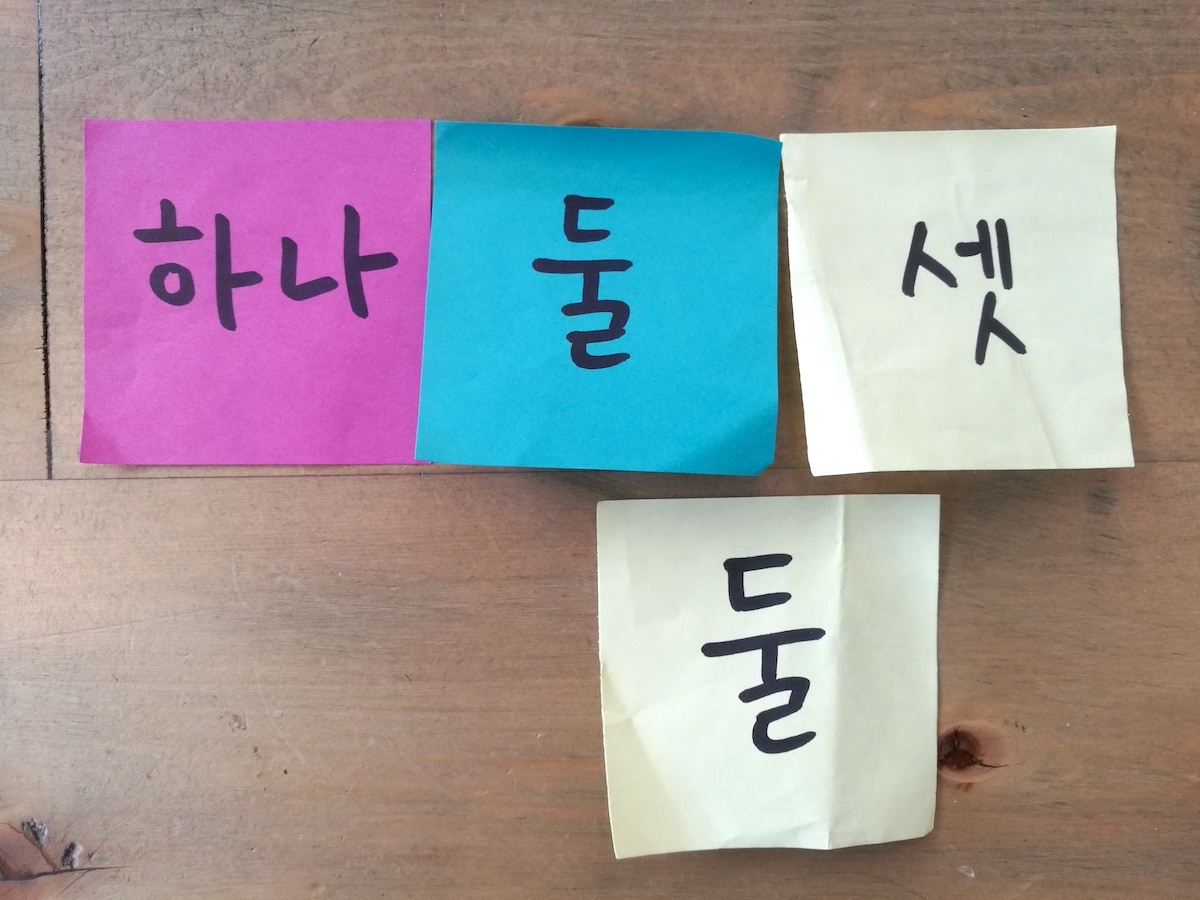 하나 둘 셋
둘